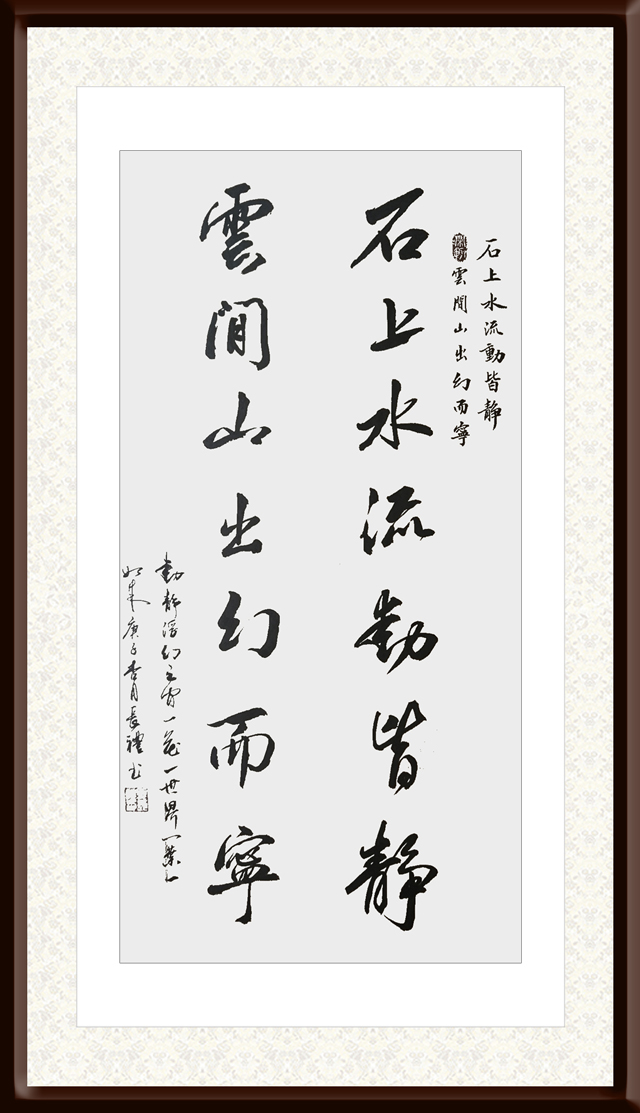 石上水流動皆靜
雲間山出幻而寧
石上水流動皆靜
雲間山出幻而寧
動靜浮幻之實一花一世界一葉一
如來 庚子杏月長禮書